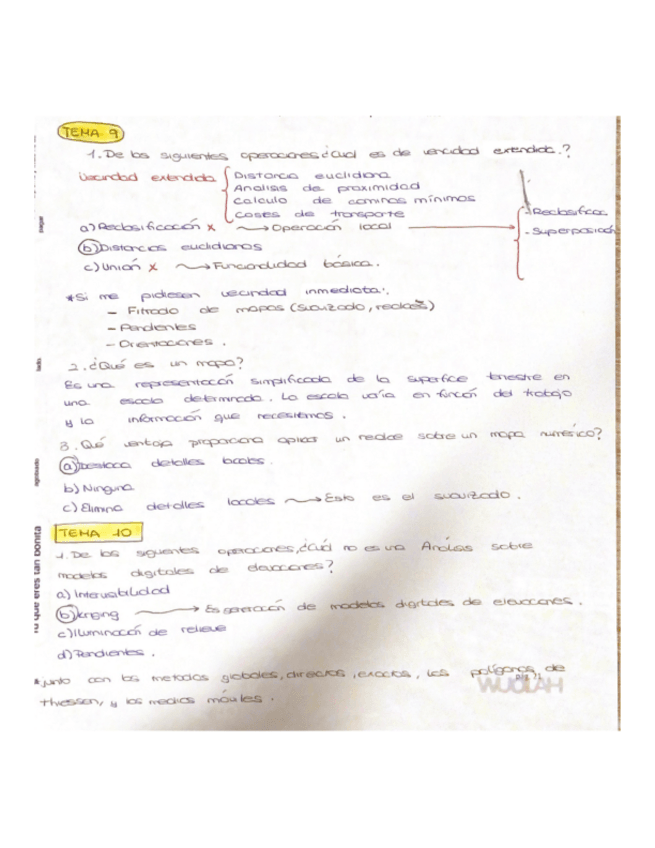 TEMA 9
1. De las siguientes operaciones ¿Cuál es de vencidad extendida.?
Vecindad extendida
Distancia euclidiana
Analisis de proximidad
Calculo de caminos mínimos
Coses de transporte
a) Reclasificación x → Operación local
- Reclasificac.
- Superposición
b) Distancias euclidianas
c) Unión x → Funcionalidad básica.
* Si me pidiesen vecindad inmediata:
- Filtrado de mapas (suavizado, realces)
- Pendientes
- Orientaciones.
2. ¿Qué es un mapa?
Es una representación simplificada de la superficie terrestre en
una escala determinada. La escala varía en función del trabajo
y la información que necesitemos.
3. Qué ventaja proporciona aplicar un realce sobre un mapa numérico?
a) Destaca detalles locales.
b) Ninguna
c) Elimina detalles locales → Esto es el suavizado.
TEMA 10
1. De las siguientes operaciones, ¿Cuál no es una Análisis sobre
modelos digitales de elevaciones?
a) Intervisibilidad
b) kriging → Es generación de modelos digitales de elevaciones.
c) Iluminación de relieve
d) Pendientes.
* junto con los metodos globales, directos, exactos, los polígonos de
thiessen, y las medias móviles.
WUOLAH